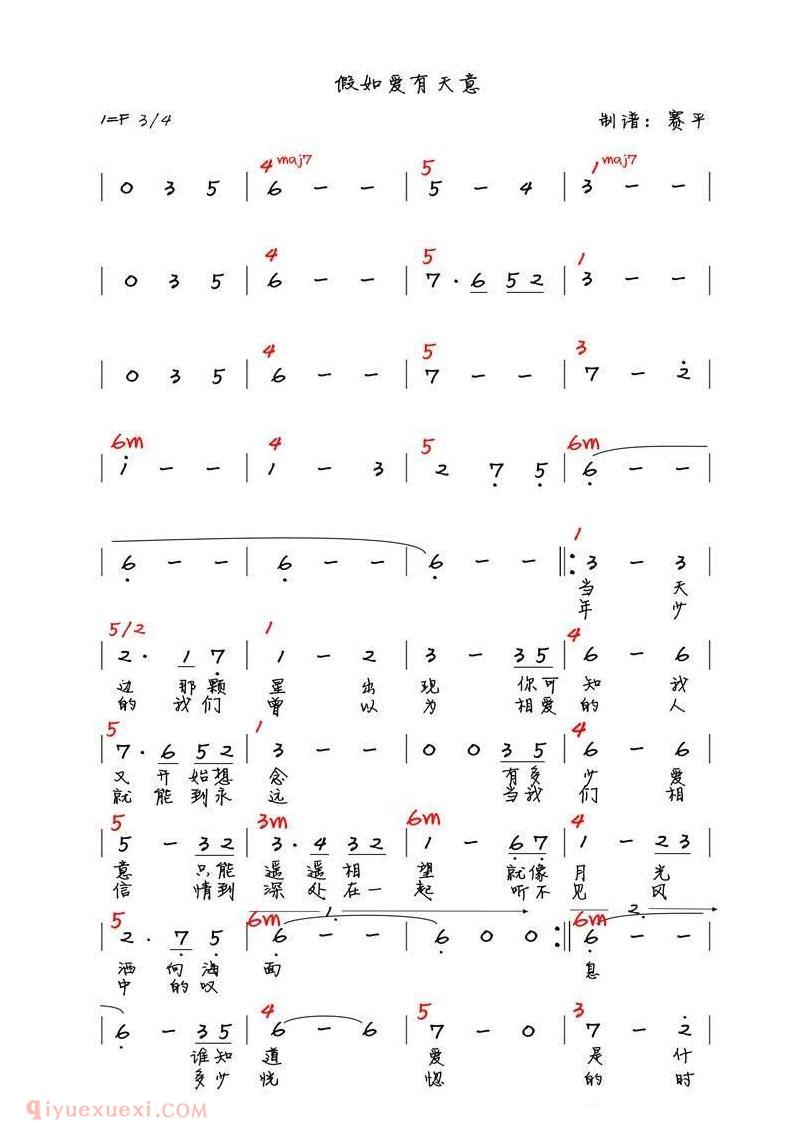 假如爱有天意
1=F 3/4 制谱：赛平
4maj7 5 1maj7
| 0 3 5 | 6 - - | 5 - 4 | 3 - - |
4 5 1
| 0 3 5 | 6 - - | 7 · 6 5 2 | 3 - - |
4 5 3
| 0 3 5 | 6 - - | 7 - - | 7 - 2̇ |
6m 4 5 6m
| 1̇ - - | 1 - 3 | 2 7̣ 5̣ | 6̣ - - |
1
| 6̣ - - | 6̣ - - | 6̣ - - ‖: 3 - 3 |
当 天
年 少
5/2 1 4
| 2 · 1 7̣ | 1 - 2 | 3 - 3 5 | 6 - 6 |
边 那颗 星 出 现 你可 知 我
的 我们 曾 以 为 相爱 的 人
5 1 4
| 7 · 6 5 2 | 3 - - | 0 0 3 5 | 6 - 6 |
又 开 始想 念 有多 少 爱
就 能 到永 远 当我 们 相
5 3m 6m 4
| 5 - 3 2 | 3 · 4 3 2 | 1 - 6̣ 7̣ | 1 - 2 3 |
意 只能 遥遥相 望 就像 月 光
信 情到 深处在一 起 听不 见 风
1. 2.
5 6m 6m
| 2 · 7̣ 5̣ | 6̣ - - | 6̣ 0 0 :‖ 6̣ - - |
洒 向海 面 息
中 的叹
4 5 3
| 6̣ - 3 5 | 6 - 6 | 7 - 0 | 7 - 2̇ |
谁知 道 爱 是 什
多少 恍 惚 的 时
qiyuexuexi.COM